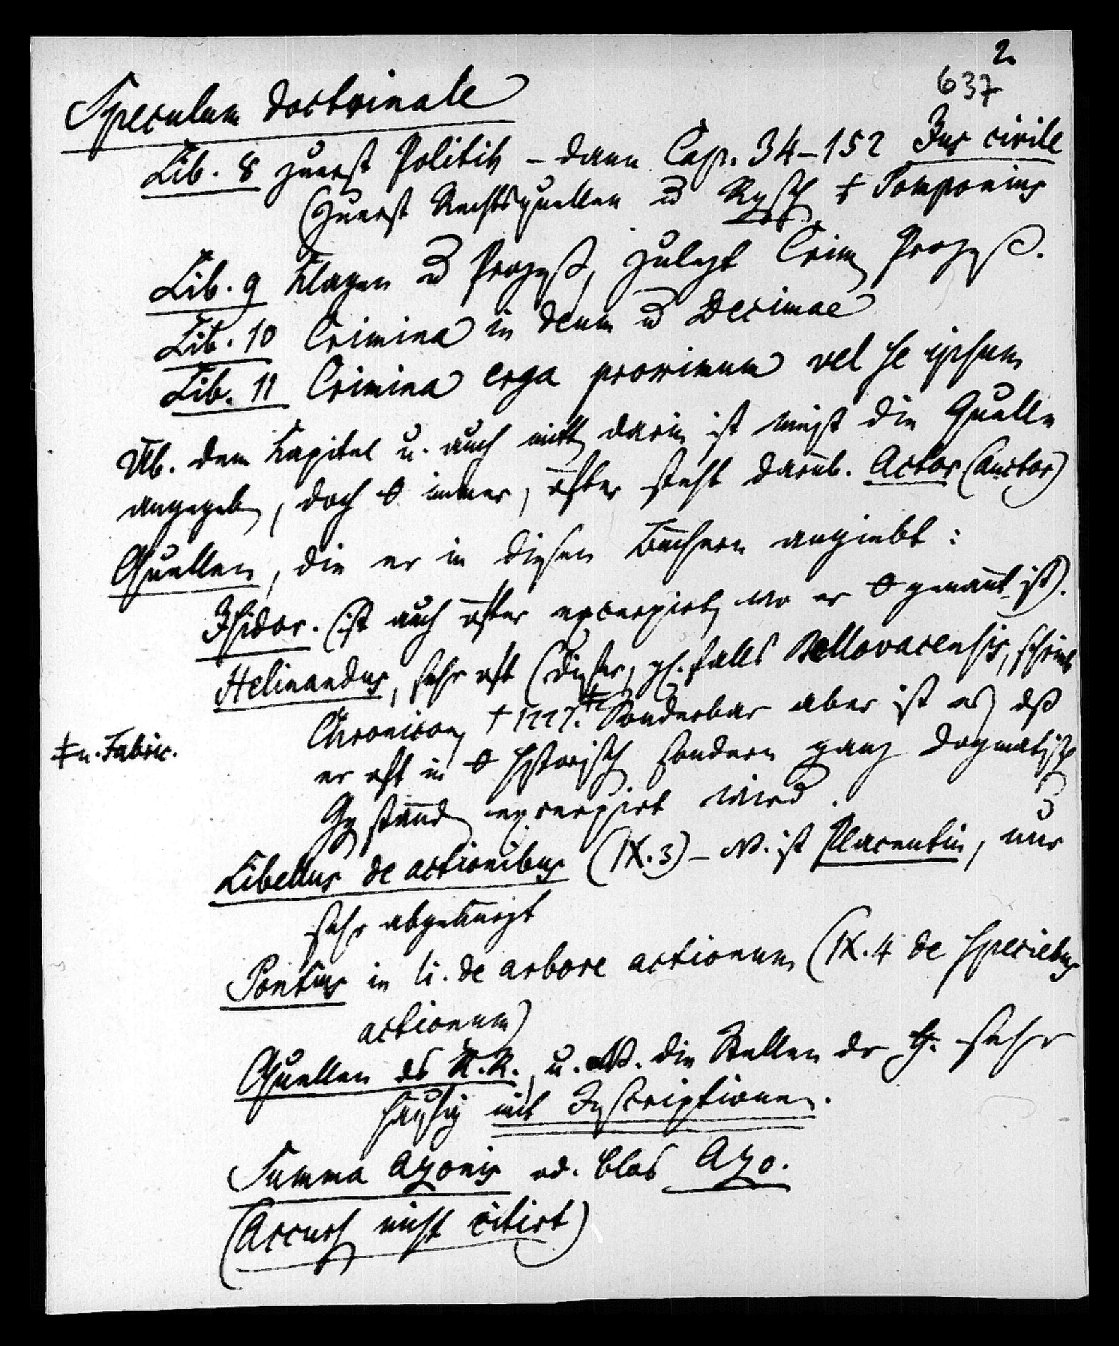 2.
637
Speculum doctrinale
Lib. 8 zuerst Politik – dann Cap. 34–152 Jus civile
(zuerst Rechtsquellen u Pomponius
Lib. 9 Klagen u Prozeß, zuletzt Crim Prozeß.
Lib. 10 Crimina in deum u Decimae
Lib. 11 Crimina erga proximum vel se ipsum
Üb. dem Kapitel u. auch mitten darin ist meist die Quelle
angegeben, doch 0 immer, öfter steht darüb. Actor (Auctor)
Quellen, die er in diesen Büchern angiebt:
Isidor. (ist auch öfter excerpirt, wo er 0 genannt ist).
Helinandus, sehr oft (dieser, gl.falls Bellovacensis, schrieb
Chronicon, † 1227.‡ Sonderbar aber ist es, dß
‡ n. Fabric.
er oft in 0 historisch sondern ganz dogmatisch
Gegenständ excerpirt wird.
Libellus de actionibus (IX.3) – NB. ist Placentin, nur
sehr abgekürzt
Pontius in li. de arbore actionum (IX.4 de speciebus
actionum)
Quellen des R.R., u. NB. die Stellen der sehr
häufig mit Inscriptionen.
Summa Azonis od. blos Azo.
(Accurs nicht citirt)